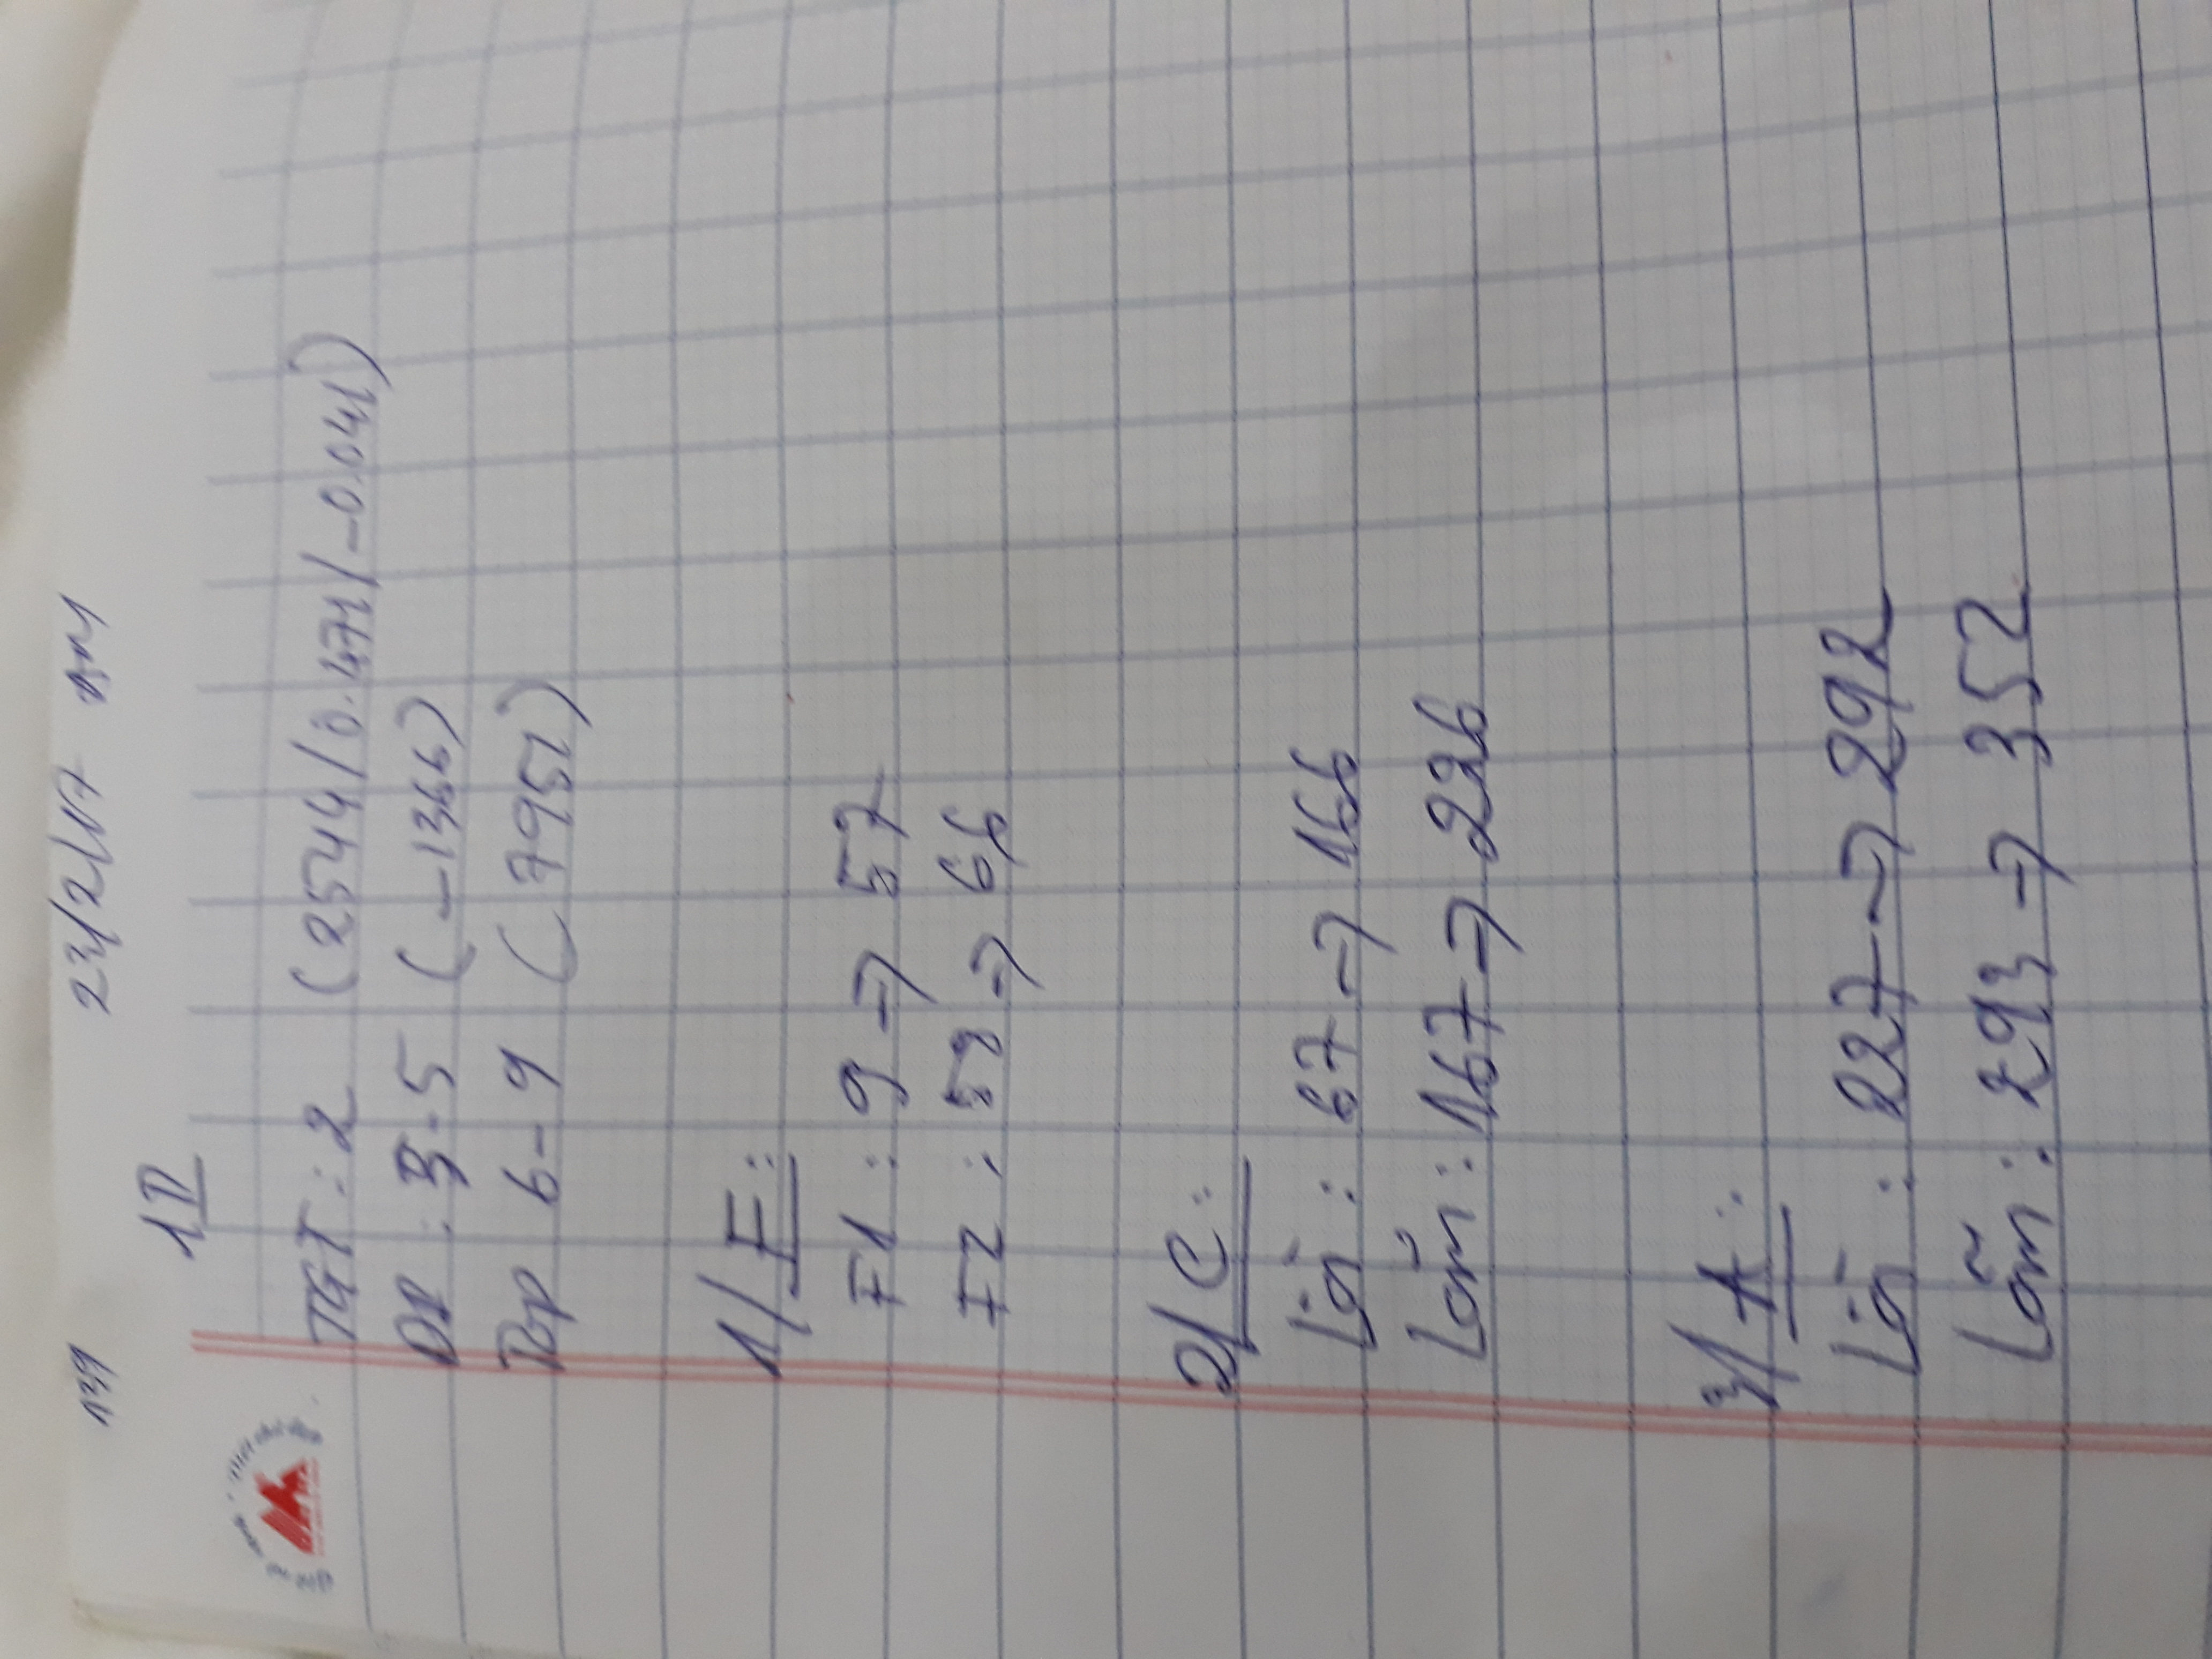 139 23/2/17 AM
1D
TGT : 2 (2544/0.471/-0.041)
DP : 3-5 (-1366)
Pop 6-9 (7951)
1/ F:
F1 : 9 → 57
F2 : 58 → 66
2/ C:
Lồi : 67 → 166
Lõm : 167 → 226
3/ A:
Lồi : 227 → 292
Lõm : 293 → 352